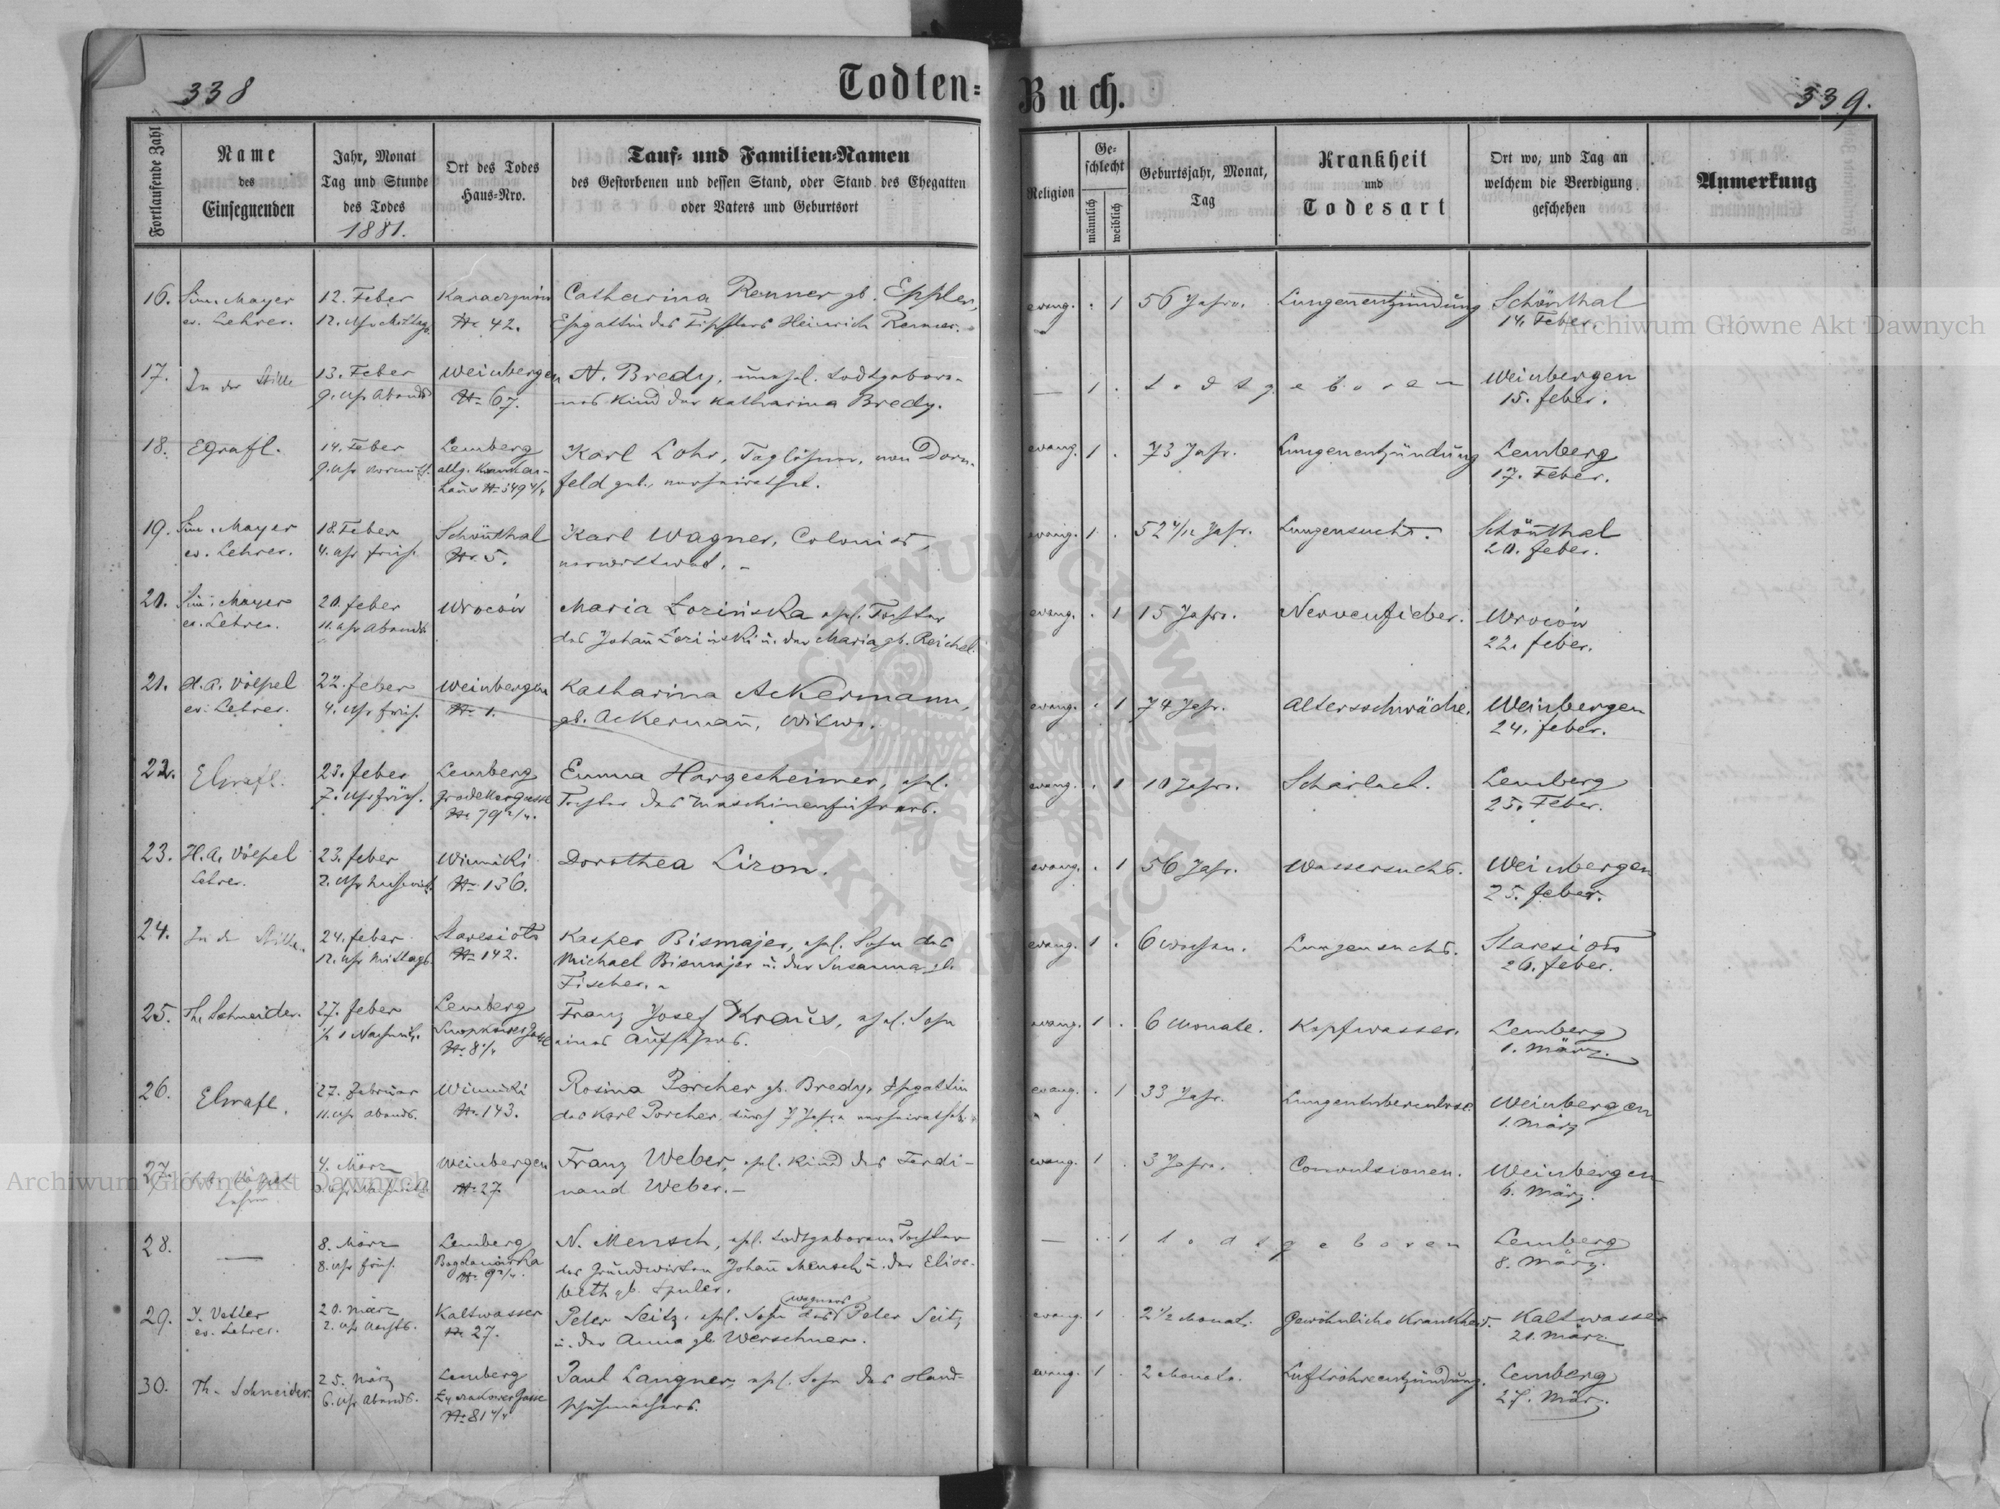 338
Todten-
Buch.
339.
Fortlaufende Zahl
Name
des
Einsegnenden
Jahr, Monat
Tag und Stunde
des Todes
1881.
Ort des Todes
Haus-Nro.
Tauf- und Familien-Namen
des Gestorbenen und dessen Stand, oder Stand des Ehegatten
oder Vaters und Geburtsort
Religion
Ge-
schlecht
männlich
weiblich
Geburtsjahr, Monat,
Tag
Krankheit
und
Todesart
Ort wo, und Tag an
welchem die Beerdigung
geschehen
Anmerkung
16. Sim. Mayer 12. Feber Catharina Renner gb. Eppler, evang. 1 56 Jahre. Lungenentzündung Schönthal
ev. Lehrer. 12. Uhr Mittags. No 42. Ehegattin des Heinrich Renner. 14. Feber.
17. In der Stille 13. Feber Weinbergen N. Bredy, unehel. todtgebore- — 1 todtgeboren Weinbergen
9. Uhr Abends No 67. nes Kind der Katharina Bredy. 15. feber.
18. 14. Feber Lemberg Karl Lohr, Taglöhner, von Dorn- evang. 1 73 Jahr. Lungenentzündung Lemberg
9. Uhr Vormitt. allg. Kranken- feld geb., verheirathet. 17. Feber.
haus No 549 4/4
19. Sim. Mayer 18. Feber Schönthal Karl Wagner, Colonist, evang. 1 52 4/12 Jahr. Lungensucht. Schönthal
ev. Lehrer. 4. Uhr früh. No 5. verwittwet. 20. feber.
20. Sim. Mayer 20. feber Wrocow Maria Łozińska ehel. Tochter evang. 1 15 Jahre. Nervenfieber. Wrocow
ev. Lehrer. 11. Uhr Abends des Johan̄ Łoziński u. der Maria gb. Reichel. 22. feber.
21. H. A. Völpel 22. feber Weinbergen Katharina Ackermann, evang. 1 74 Jahr. Altersschwäche. Weinbergen
ev. Lehrer. 4. Uhr früh. No 1. gb. Ackerman̄, Witwe. 24. feber.
22. 23. feber Lemberg Emma Hargesheimer, ehel. evang. 1 10 Jahre. Scharlach. Lemberg
7. Uhr früh. Grodekergasse Tochter des Maschinenführers. 25. Feber.
No 79 2/4.
23. H. A. Völpel 23. feber Winniki Dorothea Lizon. evang. 1 56 Jahr. Wassersucht. Weinbergen
Lehrer. 2. Uhr Nachmitt. No 136. 25. feber.
24. In der Stille. 24. feber Staresioło Kasper Bismajer, ehel. Sohn des evang. 1 6 Wochen. Lungensucht. Staresioło
12. Uhr Mittags No 142. Michael Bismajer u. der Susanna gb. 26. feber.
Fischer.
25. Th. Schneider. 27. feber Lemberg Franz Josef Kraus, ehel. Sohn evang. 1 6 Monate. Kopfwasser. Lemberg
No 8 4/4 eines Aufsehers. 1. März.
26. 27. Februar Winniki Rosina Porcher gb. Bredy, Ehegattin evang. 1 33 Jahr. Lungentuberculose. Weinbergen
11. Uhr abends. No 143. des Karl Porcher, durch 7 Jahre verheirathet. 1. März
27. 4. März Weinbergen Franz Weber, ehel. Kind des Ferdi- evang. 1 3 Jahre. Convulsionen. Weinbergen
Lehrer. No 27. nand Weber. 6. März.
28. — 8. März Lemberg N. Mensch, ehel. todtgeborene Tochter — 1 todtgeboren Lemberg
8. Uhr früh. Bogdanówka des Grundwirten Johan̄ Mensch u. der Elisa- 8. März.
beth gb. Spuler.
29. J. Vetter 20. März Kaltwasser Peter Seitz, ehel. Sohn des Wagners Peter Seitz evang. 1 2 1/2 Monat. Gewöhnliche Krankheit. Kaltwasser
ev. Lehrer. 2. Uhr Nachts. No 27. u. der Anna gb. Werschner. 21. März
30. Th. Schneider. 25. März Lemberg Paul Langner, ehel. Sohn des Hand- evang. 1 2 Monate. Luftröhrentzündung. Lemberg
6. Uhr Abends. Gasse schuhmachers. 27. März.
No 81 4/4
Archiwum Główne Akt Dawnych
Archiwum Główne Akt Dawnych
ARCHIWUM GŁÓWNE AKT DAWNYCH